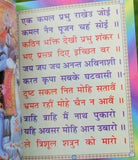 एक कमल प्रभु राखेउ जोई
कमल नैन पूजन चहं सोई
कठिन भक्ति देखी प्रभु शंकर
भए प्रसन्न दिए इच्छित वर
जय जय जय अनन्त अविनाशी
करत कृपा सबके घटवासी
दुष्ट सकल नित मोहि सतावैं
भ्रमत रहौं मोहि चैन न आवै
त्राहि त्राहि मैं नाथ पुकारो
यहि अवसर मोहि आन उबारो
ले त्रिशूल शत्रुन को मारो